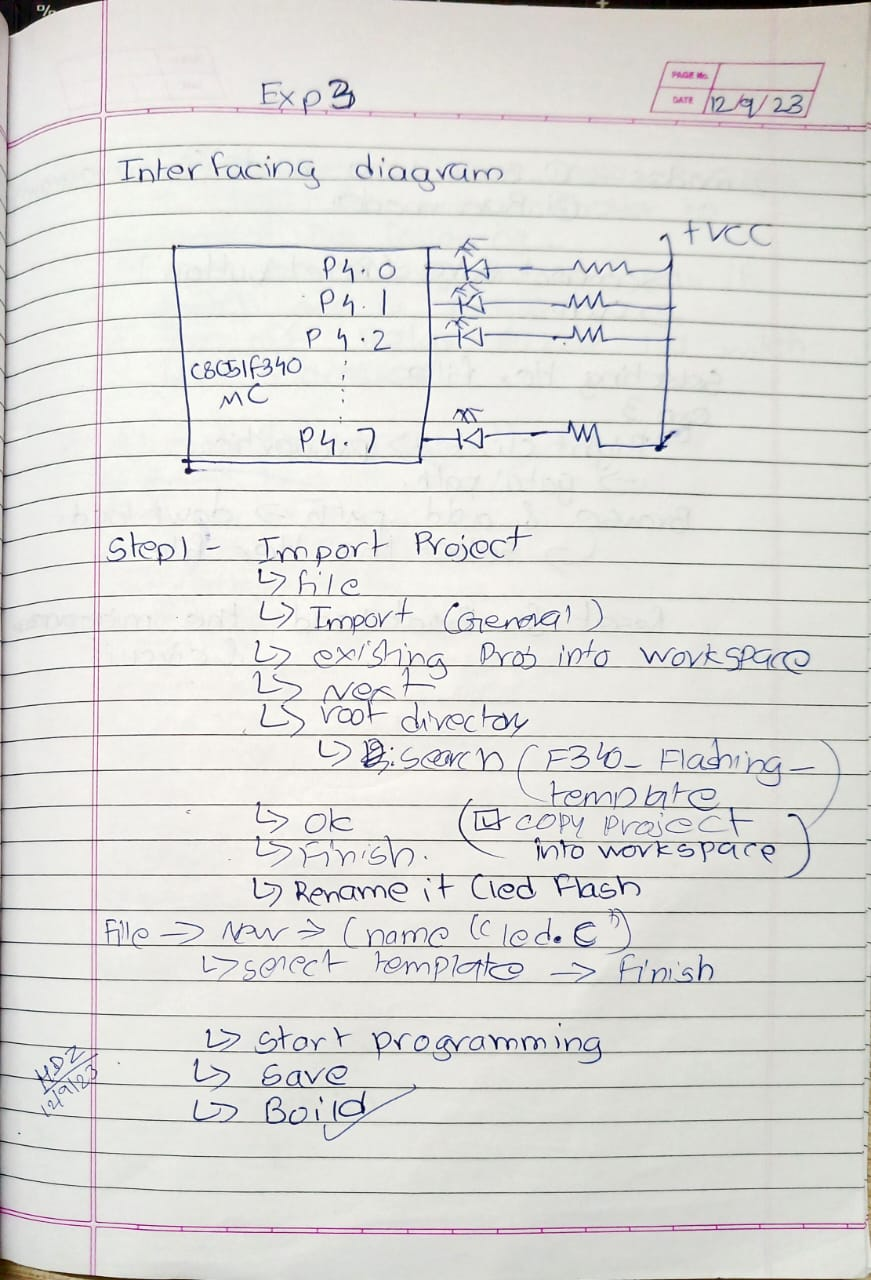 Exp 3
PAGE No.
DATE 12/9/23
Interfacing diagram
+VCC
P4.0
P4.1
P4.2
C8051F340
MC
P4.7
Step1 - Import Project
↳ file
↳ Import (General)
↳ existing Proj into workspace
↳ Next
↳ root directory
↳ search (F340_Flashing_
template
↳ OK (☑ copy project
↳ Finish. into workspace)
↳ Rename it (led Flash
File → New → (name "led.c")
↳ select template → Finish
↳ Start programming
↳ Save
↳ Boild
12/9/23